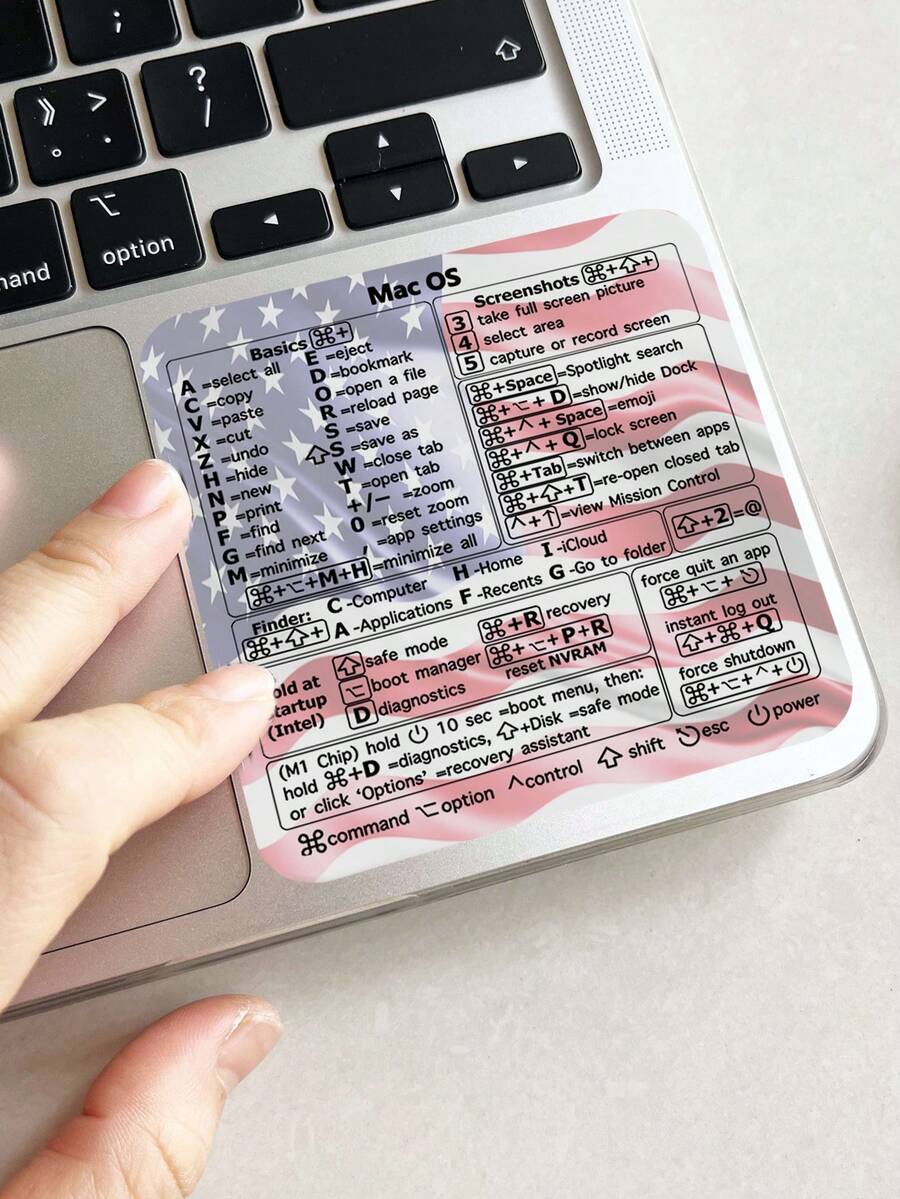 ;
》 >
。 .
?
/
⇧
mand
⌥
option
▲
◀ ▼ ▶
Mac OS
Basics ⌘+
A =select all
C =copy
V =paste
X =cut
Z =undo
H =hide
N =new
P =print
F =find
G =find next
M =minimize
E =eject
D =bookmark
O =open a file
R =reload page
S =save
⇧S =save as
W =close tab
T =open tab
+/− =zoom
0 =reset zoom
, =app settings
⌘+⌥+M+H =minimize all
Screenshots ⌘+⇧+
3 take full screen picture
4 select area
5 capture or record screen
⌘+Space =Spotlight search
⌘+⌥+D =show/hide Dock
⌘+^+Space =emoji
⌘+^+Q =lock screen
⌘+Tab =switch between apps
⌘+⇧+T =re-open closed tab
^+↑ =view Mission Control
⇧+2 =@
Finder:
⌘+⇧+
C -Computer H -Home I -iCloud
A -Applications F -Recents G -Go to folder
old at
tartup
(Intel)
⇧ safe mode
⌥ boot manager
D diagnostics
⌘+R recovery
⌘+⌥+P+R
reset NVRAM
force quit an app
⌘+⌥+⎋
instant log out
⇧+⌘+Q
force shutdown
⌘+⌥+^+⏻
(M1 Chip) hold ⏻ 10 sec =boot menu, then:
hold ⌘+D =diagnostics, ⇧+Disk =safe mode
or click 'Options' =recovery assistant
⌘command ⌥option ^control ⇧shift ⎋esc ⏻power